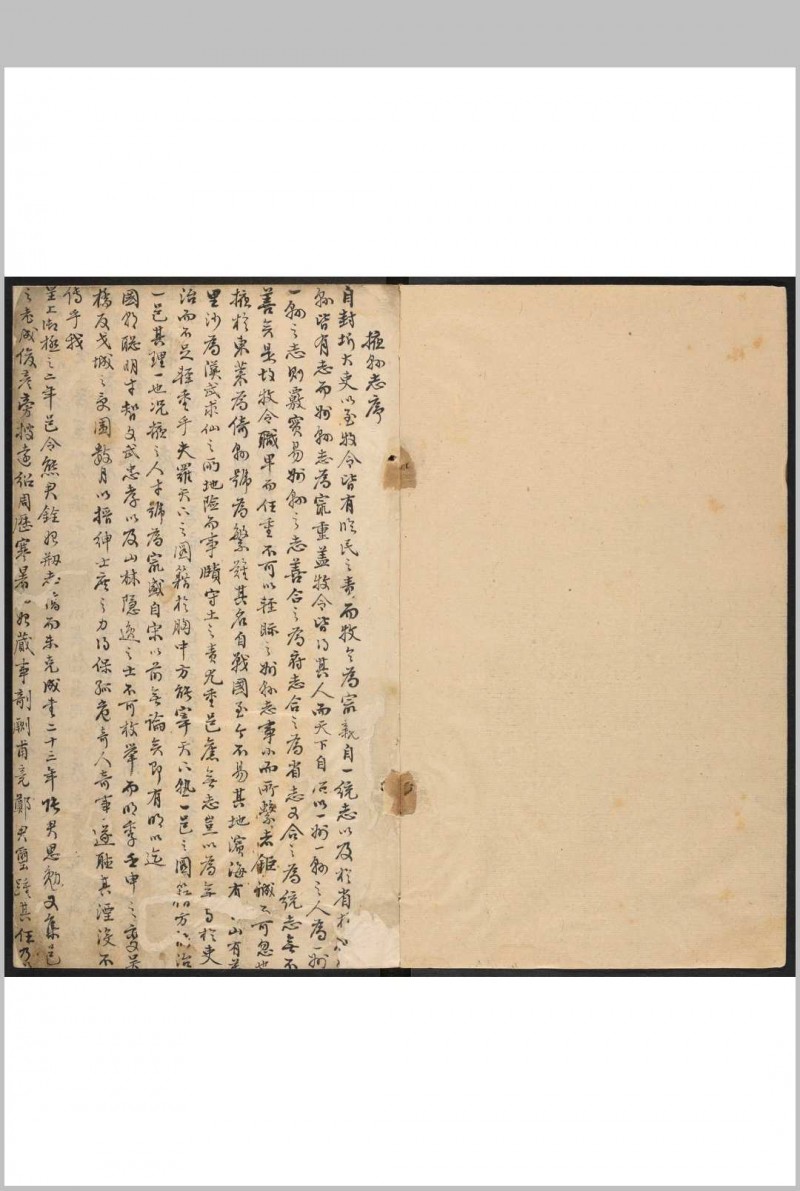 掖縣志序
自封圻大吏以至牧令皆有臨民之責而牧令為最親自一統志以及於省府
縣皆有志而州縣志為最重蓋牧令皆得其人而天下自治以一州一縣之人為一州
一縣之志則覈實易州縣之志善合之為府志合之為省志又合之為統志無不
善矣是故牧令職卑而任重不可以輕眎之州縣志事小而所繫者鉅誠不可忽也
掖於東萊為倚縣號為繁難其名自戰國至今不易其地濱海有山有
里沙為漢武求仙之所地險而事賾守土之責尤重邑舊無志豈以為無與於吏
治而不足輕重乎夫羅天下之圖籍於胸中方能宰天下熟一邑之圖籍方能治
一邑其理一也況掖之人才號為最盛自宋以前無論矣即有明以迄
國朝聰明才智文武忠孝以及山林隱逸之士不可枚舉而明季壬申之變
橋反戈城之受圍數月以搢紳士庶之力得保孤危奇人奇事遂聽其湮沒不
傳乎我
皇上御極之二年邑令熊君銓始剏志稿而未克成書二十二年張君思勉又集邑
之老成俊彥旁搜遠紹周歷寒暑始蕆事剞劂甫竟鄭君壐踵其任乃